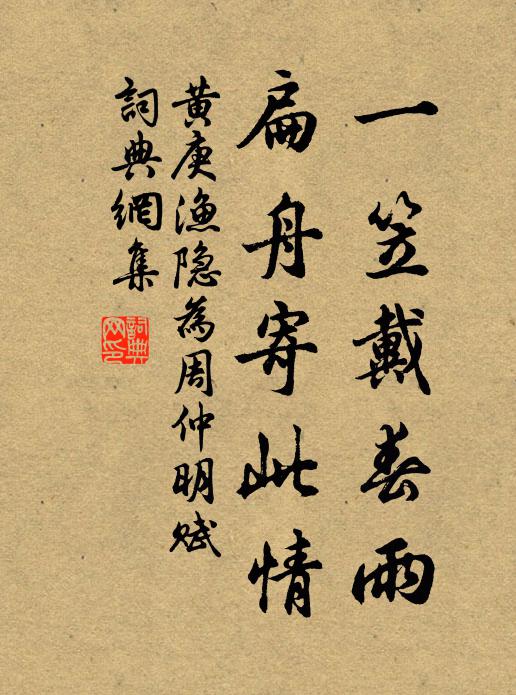 一笠戴春雨
扁舟寄此情
黄庚渔隐為周仲明赋
詞典網集
詞典
网印